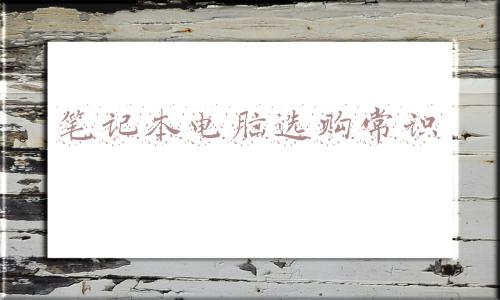 笔记本电脑选购常识